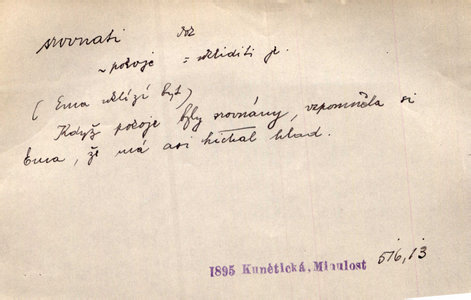 srovnati dok
~ pokoje = uklidit je.
(Ema uklízí byt)
Když pokoje byly srovnány, vzpomněla si
Ema, že má asi Michal hlad.
1895 Kunětická, Minulost 516,13